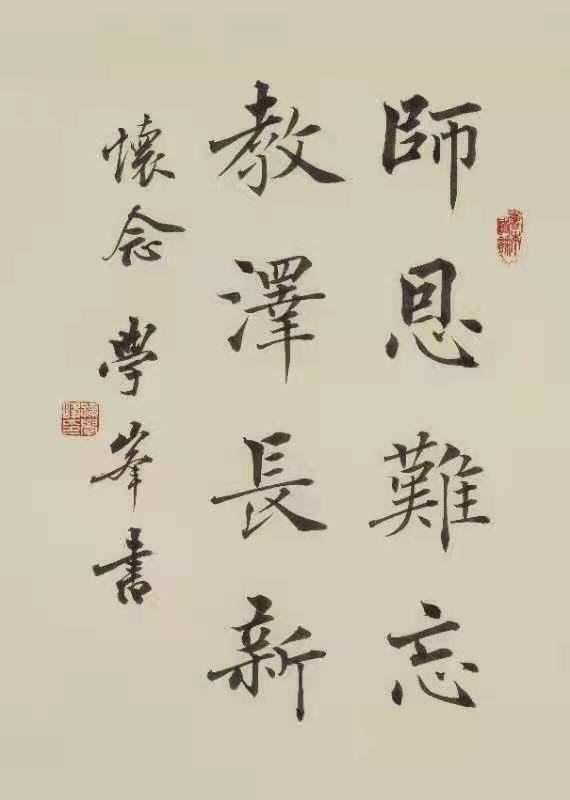 師恩難忘
教澤長新
懷念 學峯书